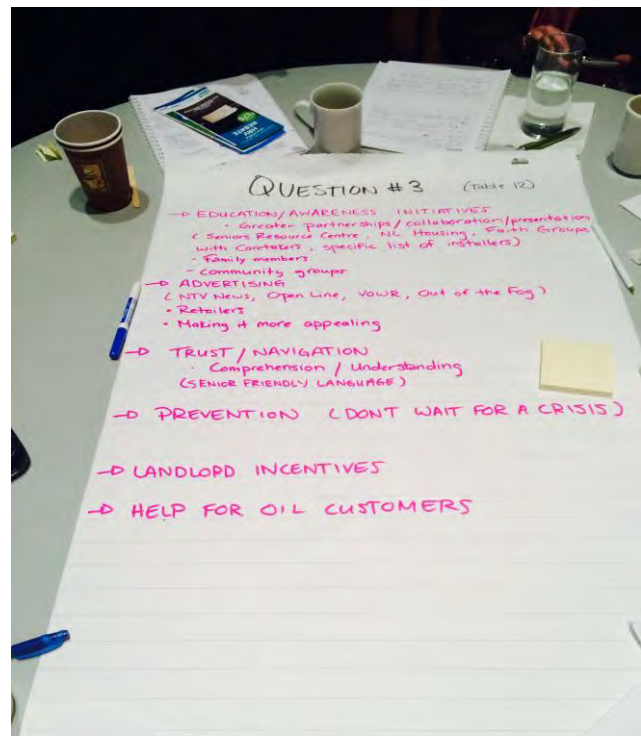 QUESTION #3 (Table 12)
→ EDUCATION/AWARENESS INITIATIVES
• Greater partnerships/collaboration/presentation
(Seniors Resource Centre, NL Housing, Faith Groups
with Caretakers, specific list of installers)
- Family members
- Community groups
→ ADVERTISING
(NTV News, Open Line, VOWR, Out of the Fog)
• Retailers
• Making it more appealing
→ TRUST / NAVIGATION
• Comprehension / Understanding
(SENIOR FRIENDLY LANGUAGE)
→ PREVENTION (DONT WAIT FOR A CRISIS)
→ LANDLORD INCENTIVES
→ HELP FOR OIL CUSTOMERS